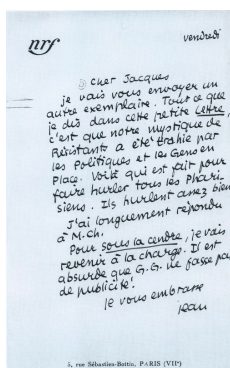 nrf
vendredi
cher Jacques
je vais vous envoyer un
autre exemplaire. Tout ce que
je dis dans cette petite Lettre,
c'est que notre mystique de
Résistants a été trahie par
les Politiques et les Gens en
Place. Voilà qui est fait pour
faire hurler tous les Phari-
siens. Ils hurlent assez bien
J'ai longuement répondu
à M.Ch.
Pour sous la cendre, je vais
revenir à la charge. Il est
absurde que G.G. ne fasse pas
de publicité!
je vous embrasse
jean
5, rue Sébastien-Bottin, PARIS (VIIe)